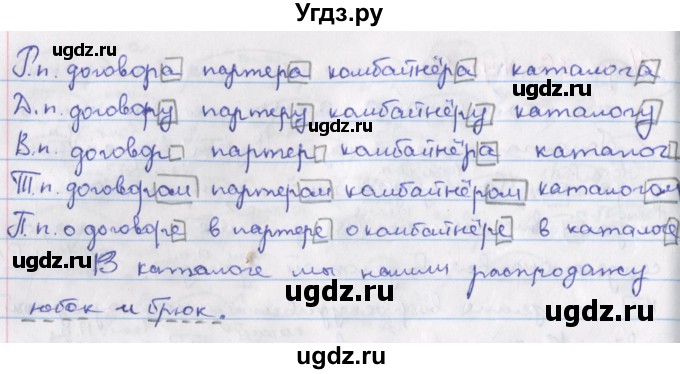 Угдз.ру
Р.п. договора партера комбайнёра каталога
Д.п. договору партеру комбайнёру каталогу
В.п. договор партер комбайнёра каталог
Т.п. договором партером комбайнёром каталогом
П.п. о договоре в партере о комбайнёре в каталоге
В каталоге мы нашли распродажу
юбок и брюк.
ugdz.ru
ugdz.ru
ugdz.ru
ugdz.ru
ugdz.ru
ugdz.ru
ugdz.ru
ugdz.ru
ugdz.ru
ugdz.ru
ugdz.ru